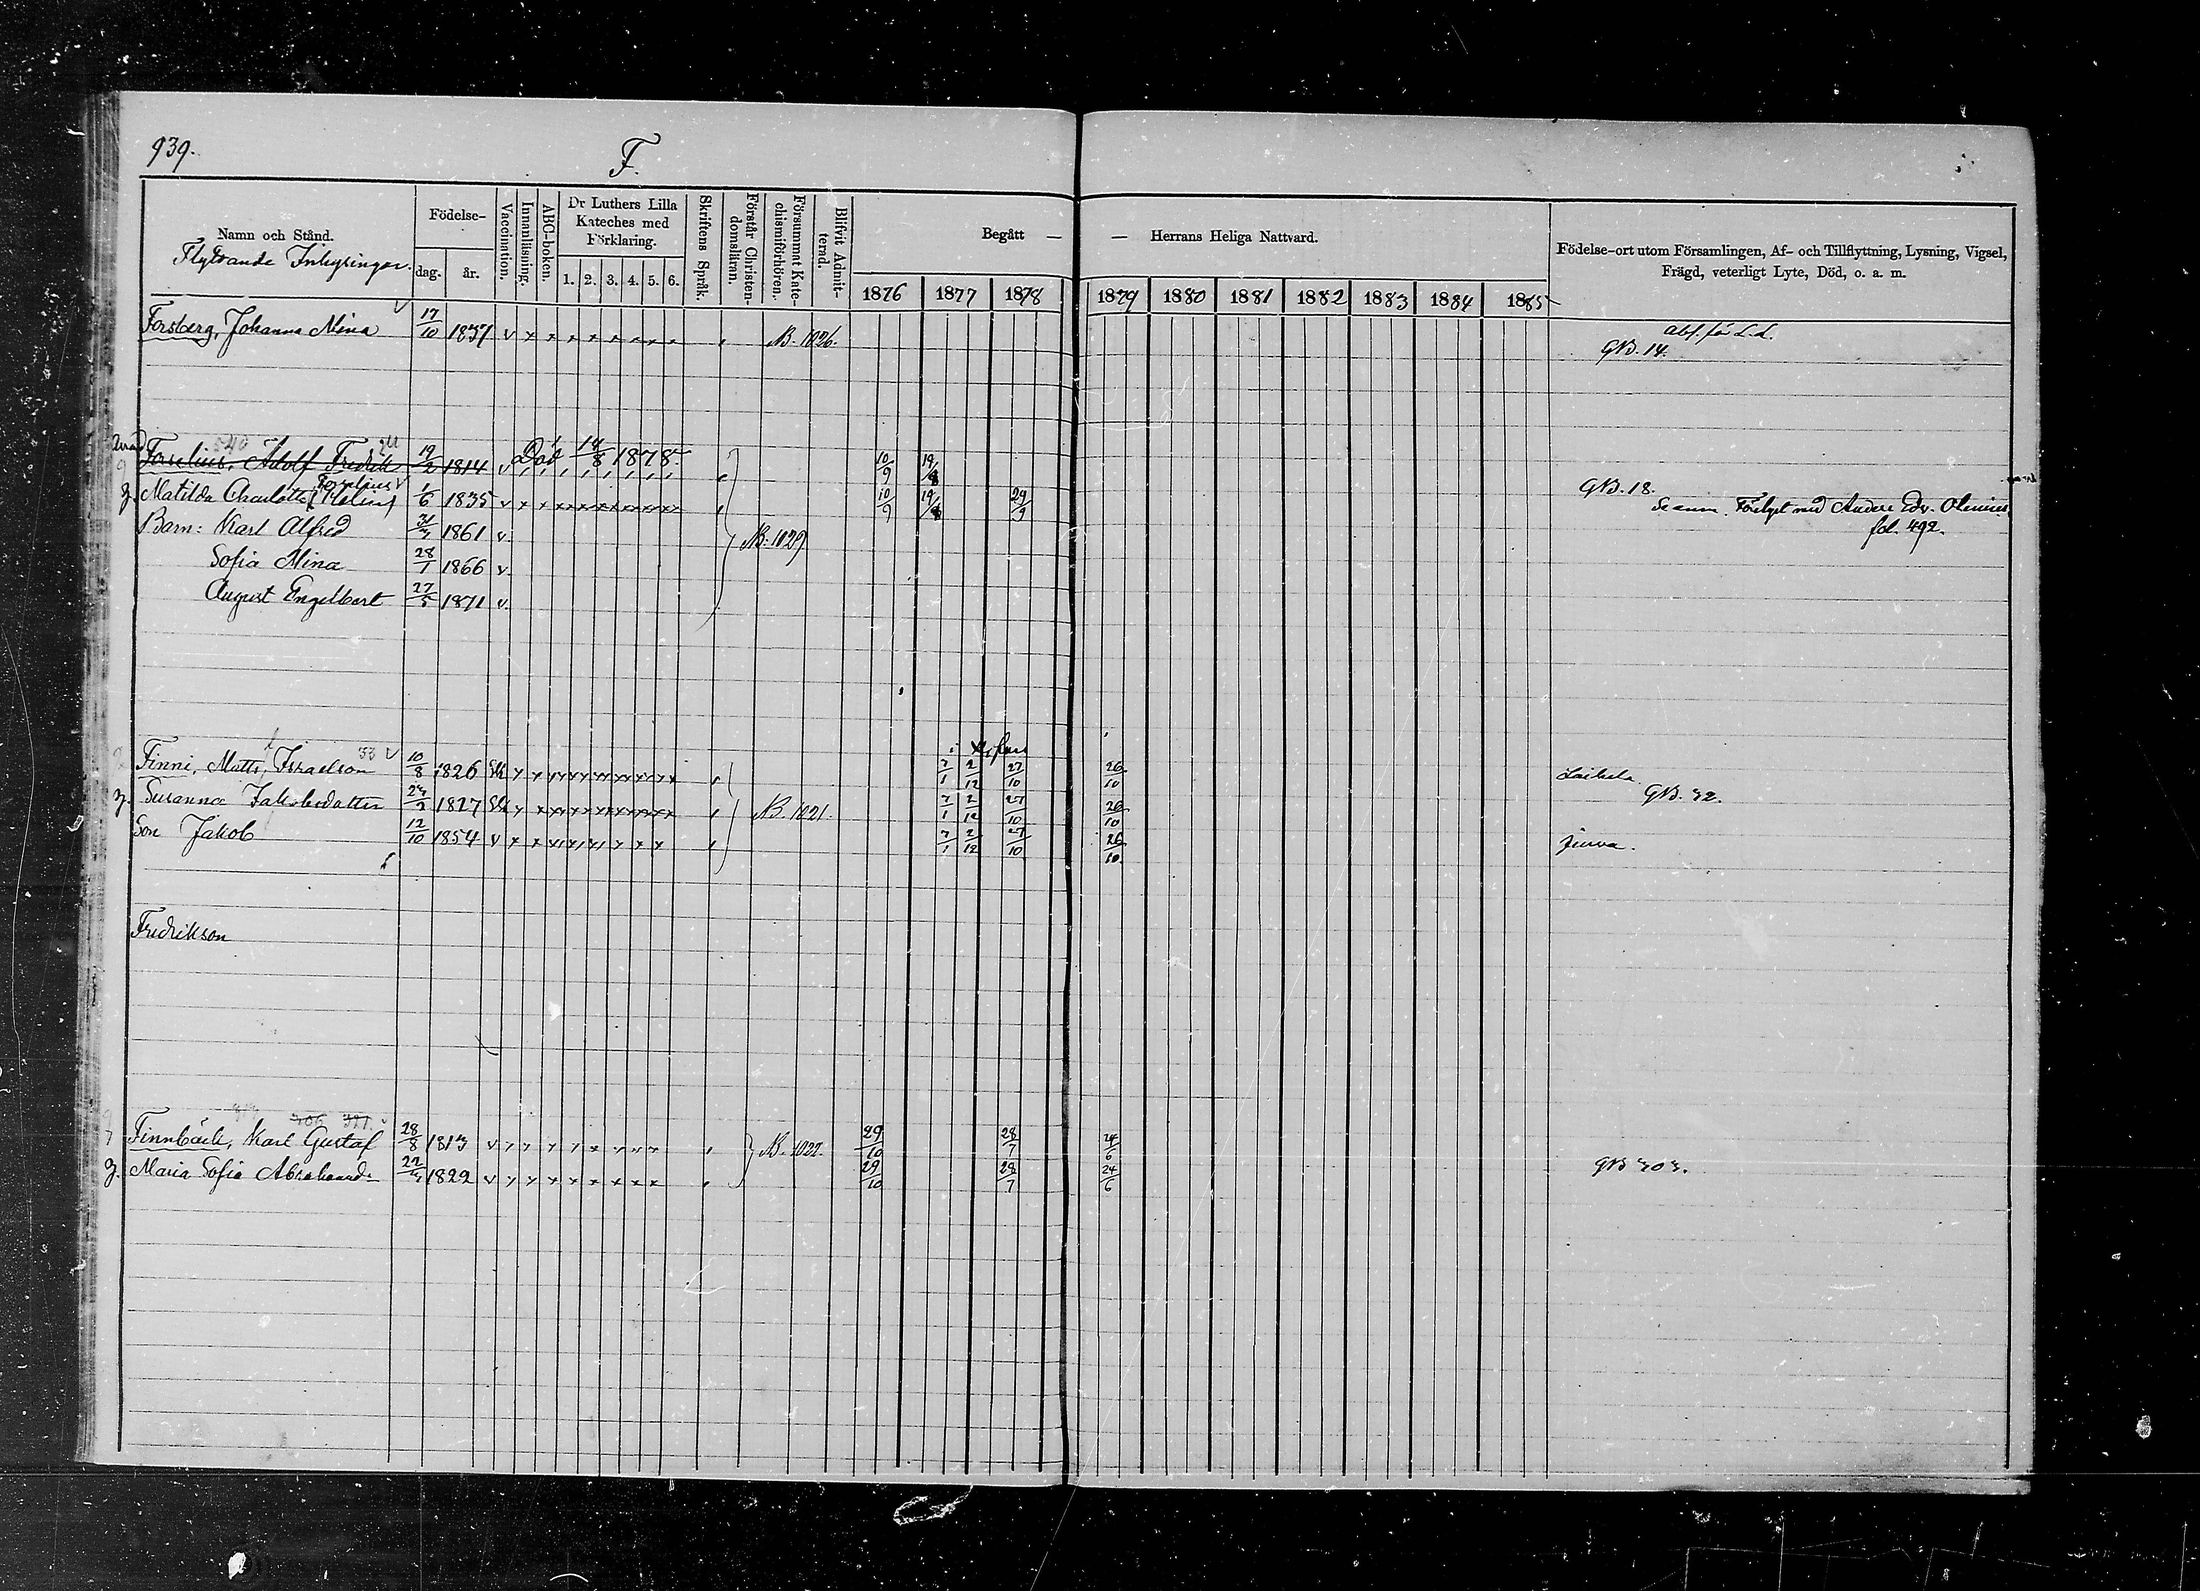 939.
F.
Namn och Stånd.
Flyttande Inhysingar.
Födelse-
dag.
år.
Vaccination.
Innanläsning.
ABC-boken.
Dr Luthers Lilla
Kateches med
Förklaring.
1. 2. 3. 4. 5. 6.
Skriftens Språk.
Förstår Christen-
domsläran.
Försummat Kate-
chismiförhören.
Blifvit Admit-
terad.
Begått — — Herrans Heliga Nattvard.
1876 1877 1878 1879 1880 1881 1882 1883 1884 1885
Födelse-ort utom Församlingen, Af- och Tillflyttning, Lysning, Vigsel,
Frägd, veterligt Lyte, Död, o. a. m.
Forsberg, Johanna Mina 17/10 1837 v N.B. 1026.
GB. 14.
Forselius, Adolf Fredrik 19/2 1814 v Död 14/8 1878. 10/9 19/8
Matilda Charlotta 1/6 1835 v 10/9 19/8 29/9 GB. 18.
fol. 492.
Barn: Karl Alfred 1861 v. NB: 1029
Sofia Mina 28/1 1866 v.
August Engelbert 27/5 1871 v.
Finni, Matts, Israelson 10/8 1826 7/1 2/12 27/10 26/10 Laihela
Susanna Jakobsdotter 1827 NB. 1021. 7/1 2/12 27/10 26/10 GB. 32.
Son Jakob 12/10 1854 v 7/1 2/12 27/10 26/10 Jurva.
Fredrikson
Finnbäck, Karl Gustaf 28/8 1813 v NB. 1022. 29/10 28/7 24/6
Maria Sofia 1822 v 29/10 28/7 24/6 GB 303.